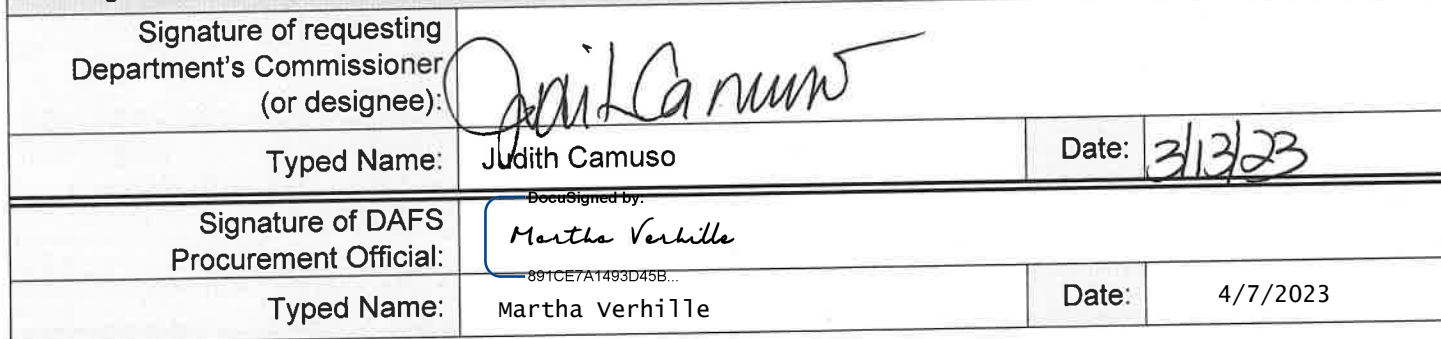 Signature of requesting
Department's Commissioner
(or designee):
Judith Camuso
Typed Name: Judith Camuso Date: 3/13/23
DocuSigned by:
Signature of DAFS
Procurement Official:
Martha Verhille
891CE7A1493D45B...
Typed Name: Martha Verhille Date: 4/7/2023